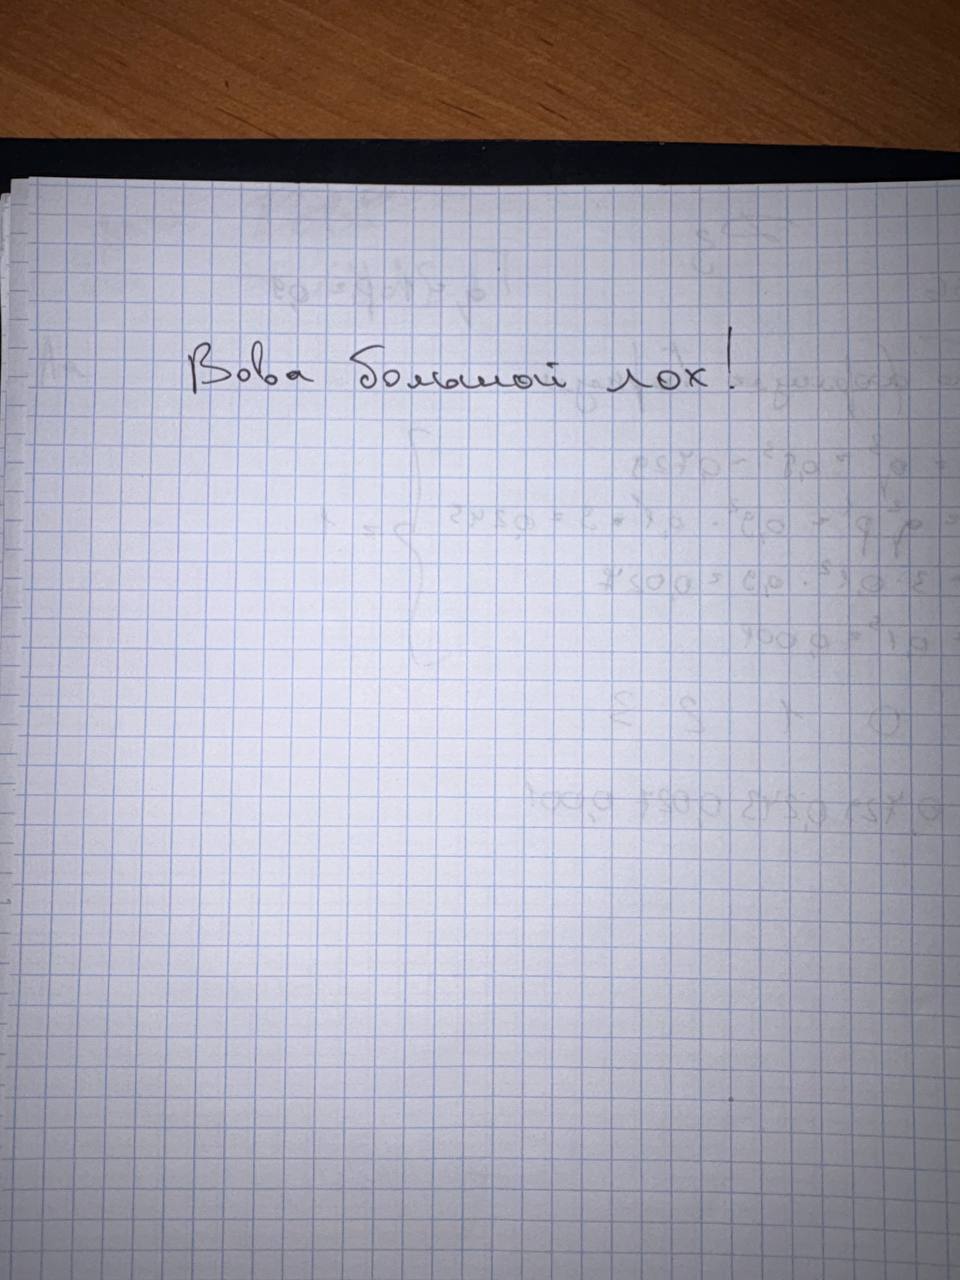 Вова большой лох!